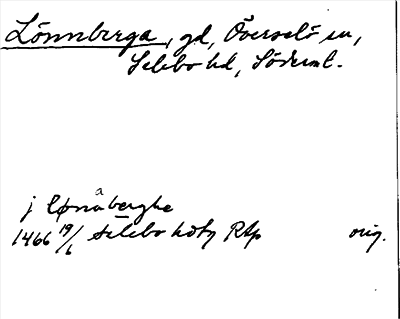 Lönnberga, gd, Överselö sn,
Selebo hd, Söderml.
j lønaberghe
1466 19/6 Selebo hdtg RAp orig.